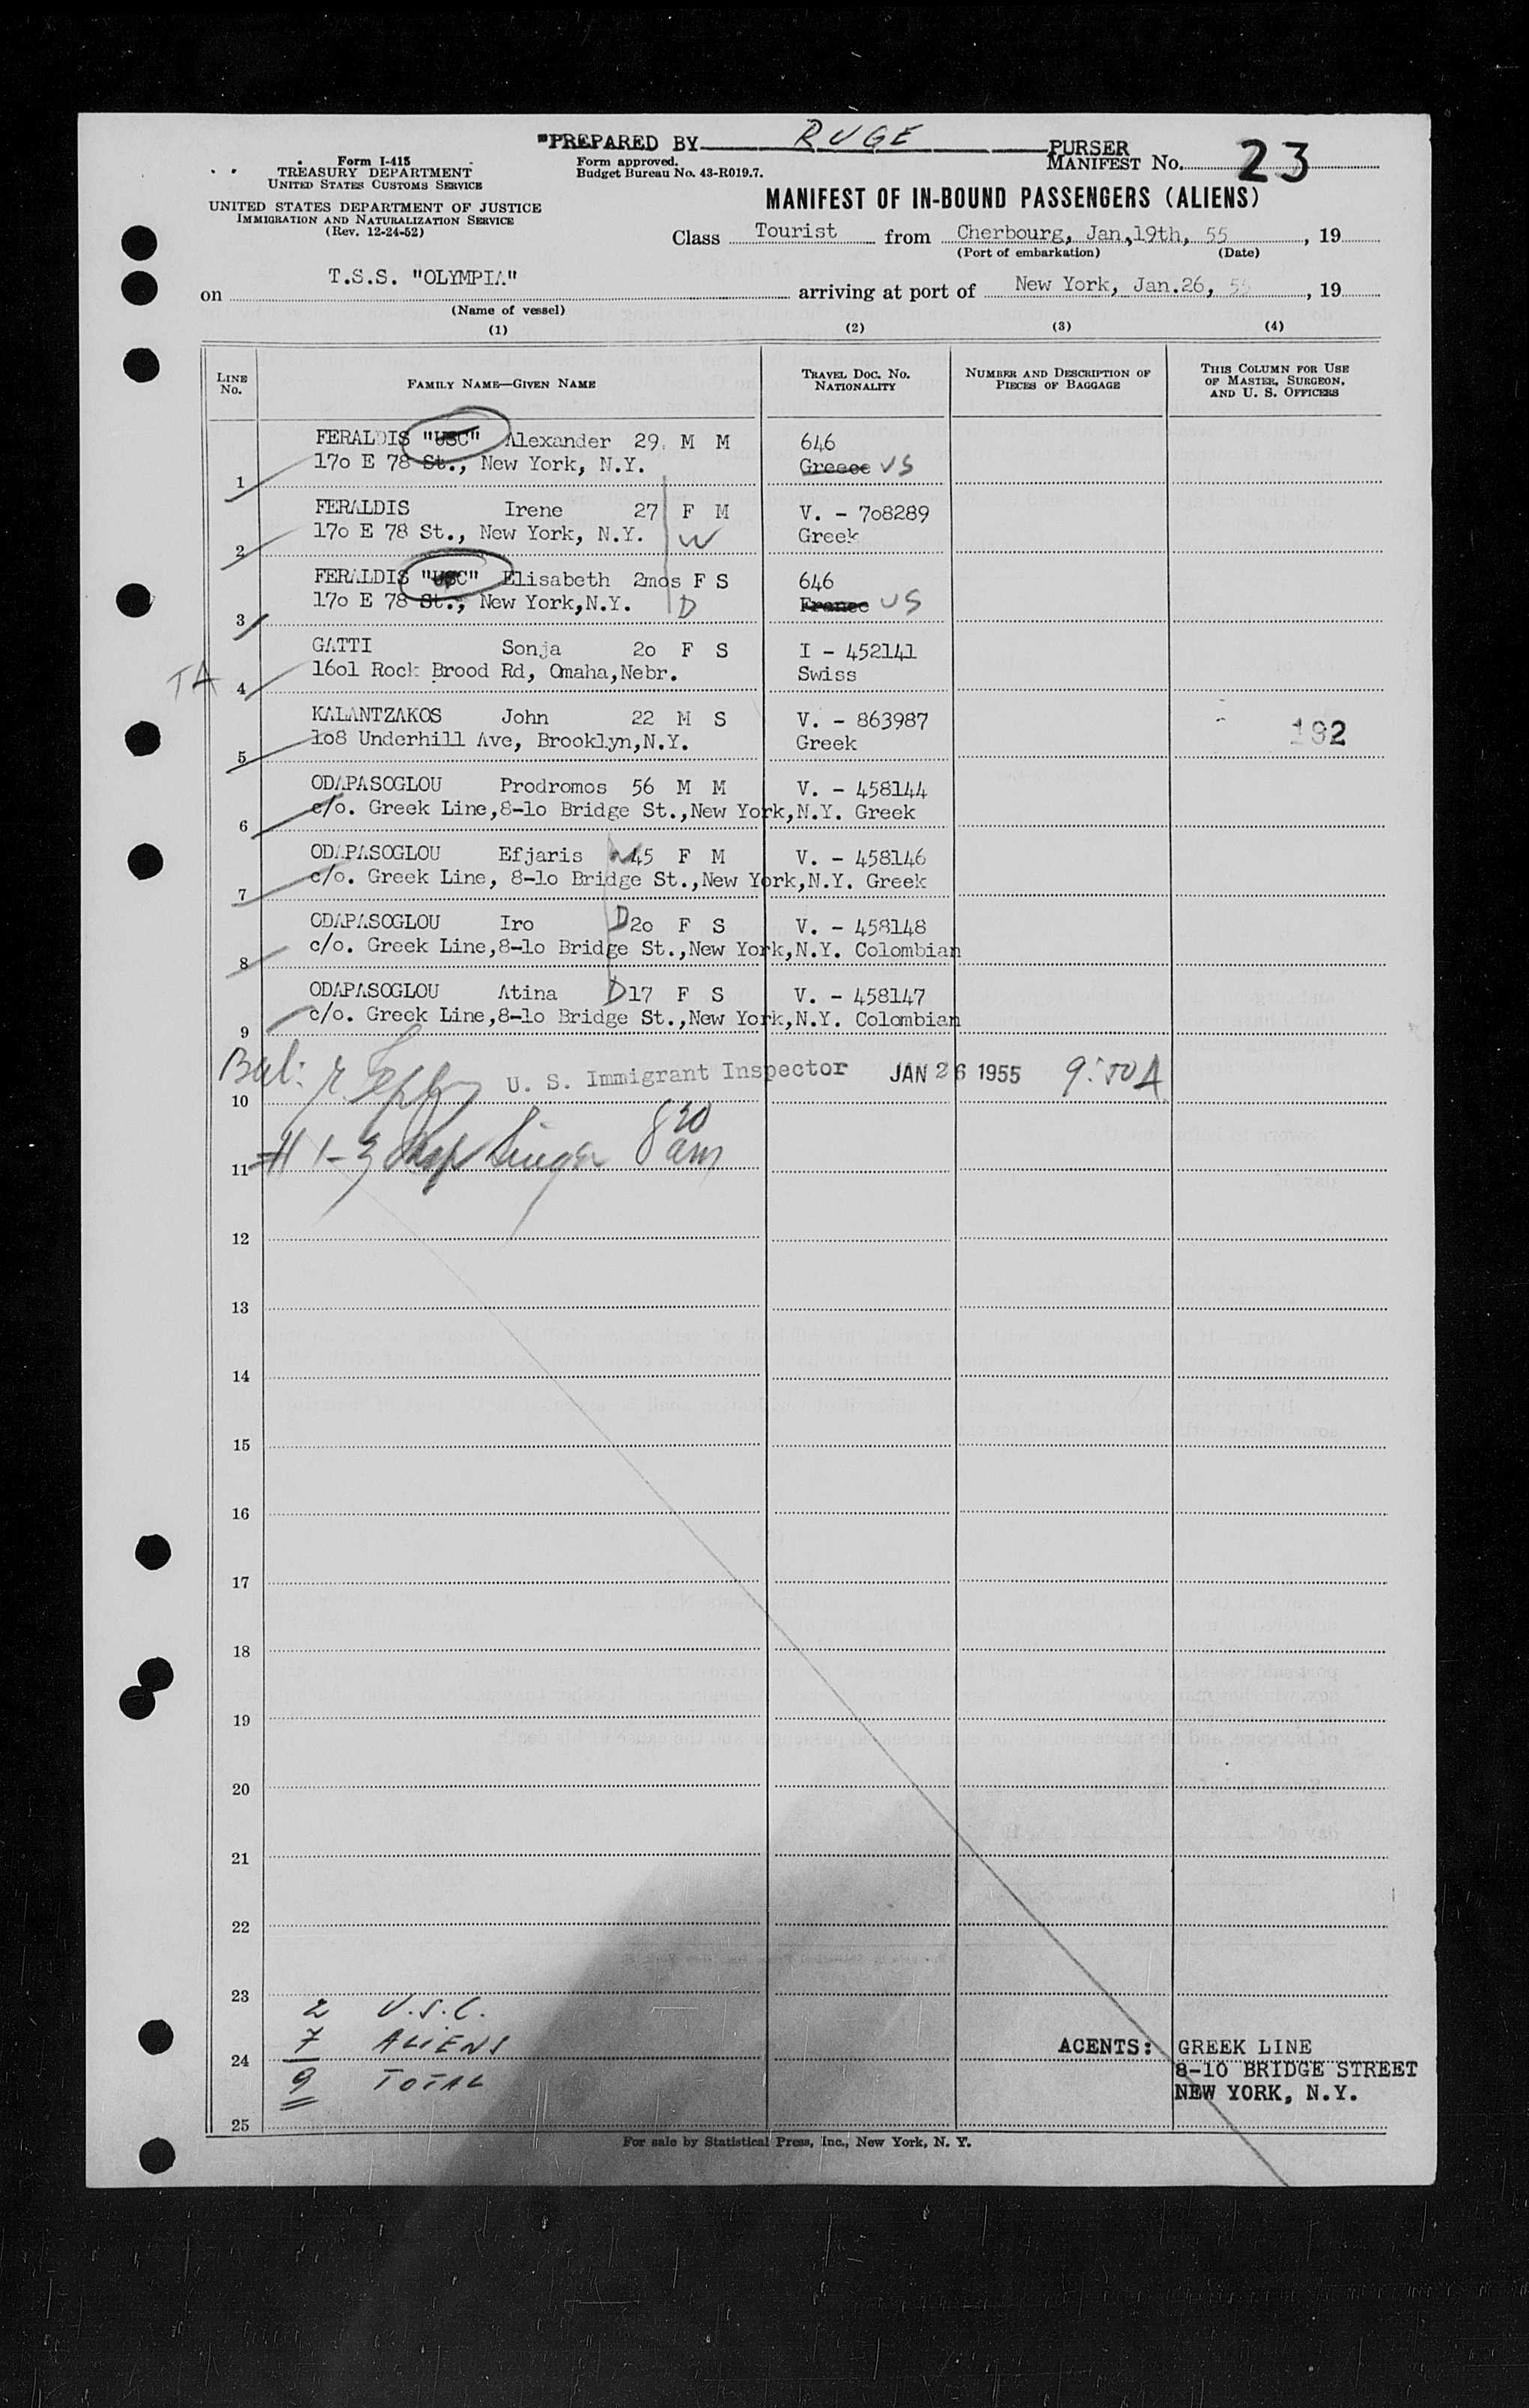 "PREPARED BY RUGE PURSER
Form I-415
TREASURY DEPARTMENT
UNITED STATES CUSTOMS SERVICE
UNITED STATES DEPARTMENT OF JUSTICE
IMMIGRATION AND NATURALIZATION SERVICE
(Rev. 12-24-52)
Form approved.
Budget Bureau No. 43-R019.7.
MANIFEST No. 23
MANIFEST OF IN-BOUND PASSENGERS (ALIENS)
Class Tourist from Cherbourg, Jan,19th, 55, 19
(Port of embarkation) (Date)
on T.S.S. "OLYMPIA" arriving at port of New York, Jan.26, 55, 19
(Name of vessel)
(1) (2) (3) (4)
LINE No. FAMILY NAME—GIVEN NAME TRAVEL DOC. NO. NATIONALITY NUMBER AND DESCRIPTION OF PIECES OF BAGGAGE THIS COLUMN FOR USE OF MASTER, SURGEON, AND U. S. OFFICERS
FERALDIS "USC" Alexander 29 M M 646
1 170 E 78 St., New York, N.Y. Greece US
FERALDIS Irene 27 F M V. - 708289
2 170 E 78 St., New York, N.Y. W Greek
FERALDIS "USC" Elisabeth 2mos F S 646
3 170 E 78 St., New York,N.Y. D France US
GATTI Sonja 20 F S I - 452141
TA 4 1601 Rock Brood Rd, Omaha,Nebr. Swiss
KALANTZAKOS John 22 M S V. - 863987 192
5 108 Underhill Ave, Brooklyn,N.Y. Greek
ODAPASOGLOU Prodromos 56 M M V. - 458144
6 c/o. Greek Line,8-10 Bridge St.,New York,N.Y. Greek
ODAPASOGLOU Efjaris W 45 F M V. - 458146
7 c/o. Greek Line, 8-10 Bridge St.,New York,N.Y. Greek
ODAPASOGLOU Iro D 20 F S V. - 458148
8 c/o. Greek Line,8-10 Bridge St.,New York,N.Y. Colombian
ODAPASOGLOU Atina D 17 F S V. - 458147
9 c/o. Greek Line,8-10 Bridge St.,New York,N.Y. Colombian
Bal: U. S. Immigrant Inspector JAN 26 1955 9:50A
10
11 # 1-3 Singer 8 30 am
12
13
14
15
16
17
18
19
20
21
22
23
2 U.S.C.
7 ALIENS
24
9 TOTAL
25
AGENTS: GREEK LINE
8-10 BRIDGE STREET
NEW YORK, N.Y.
For sale by Statistical Press, Inc., New York, N. Y.